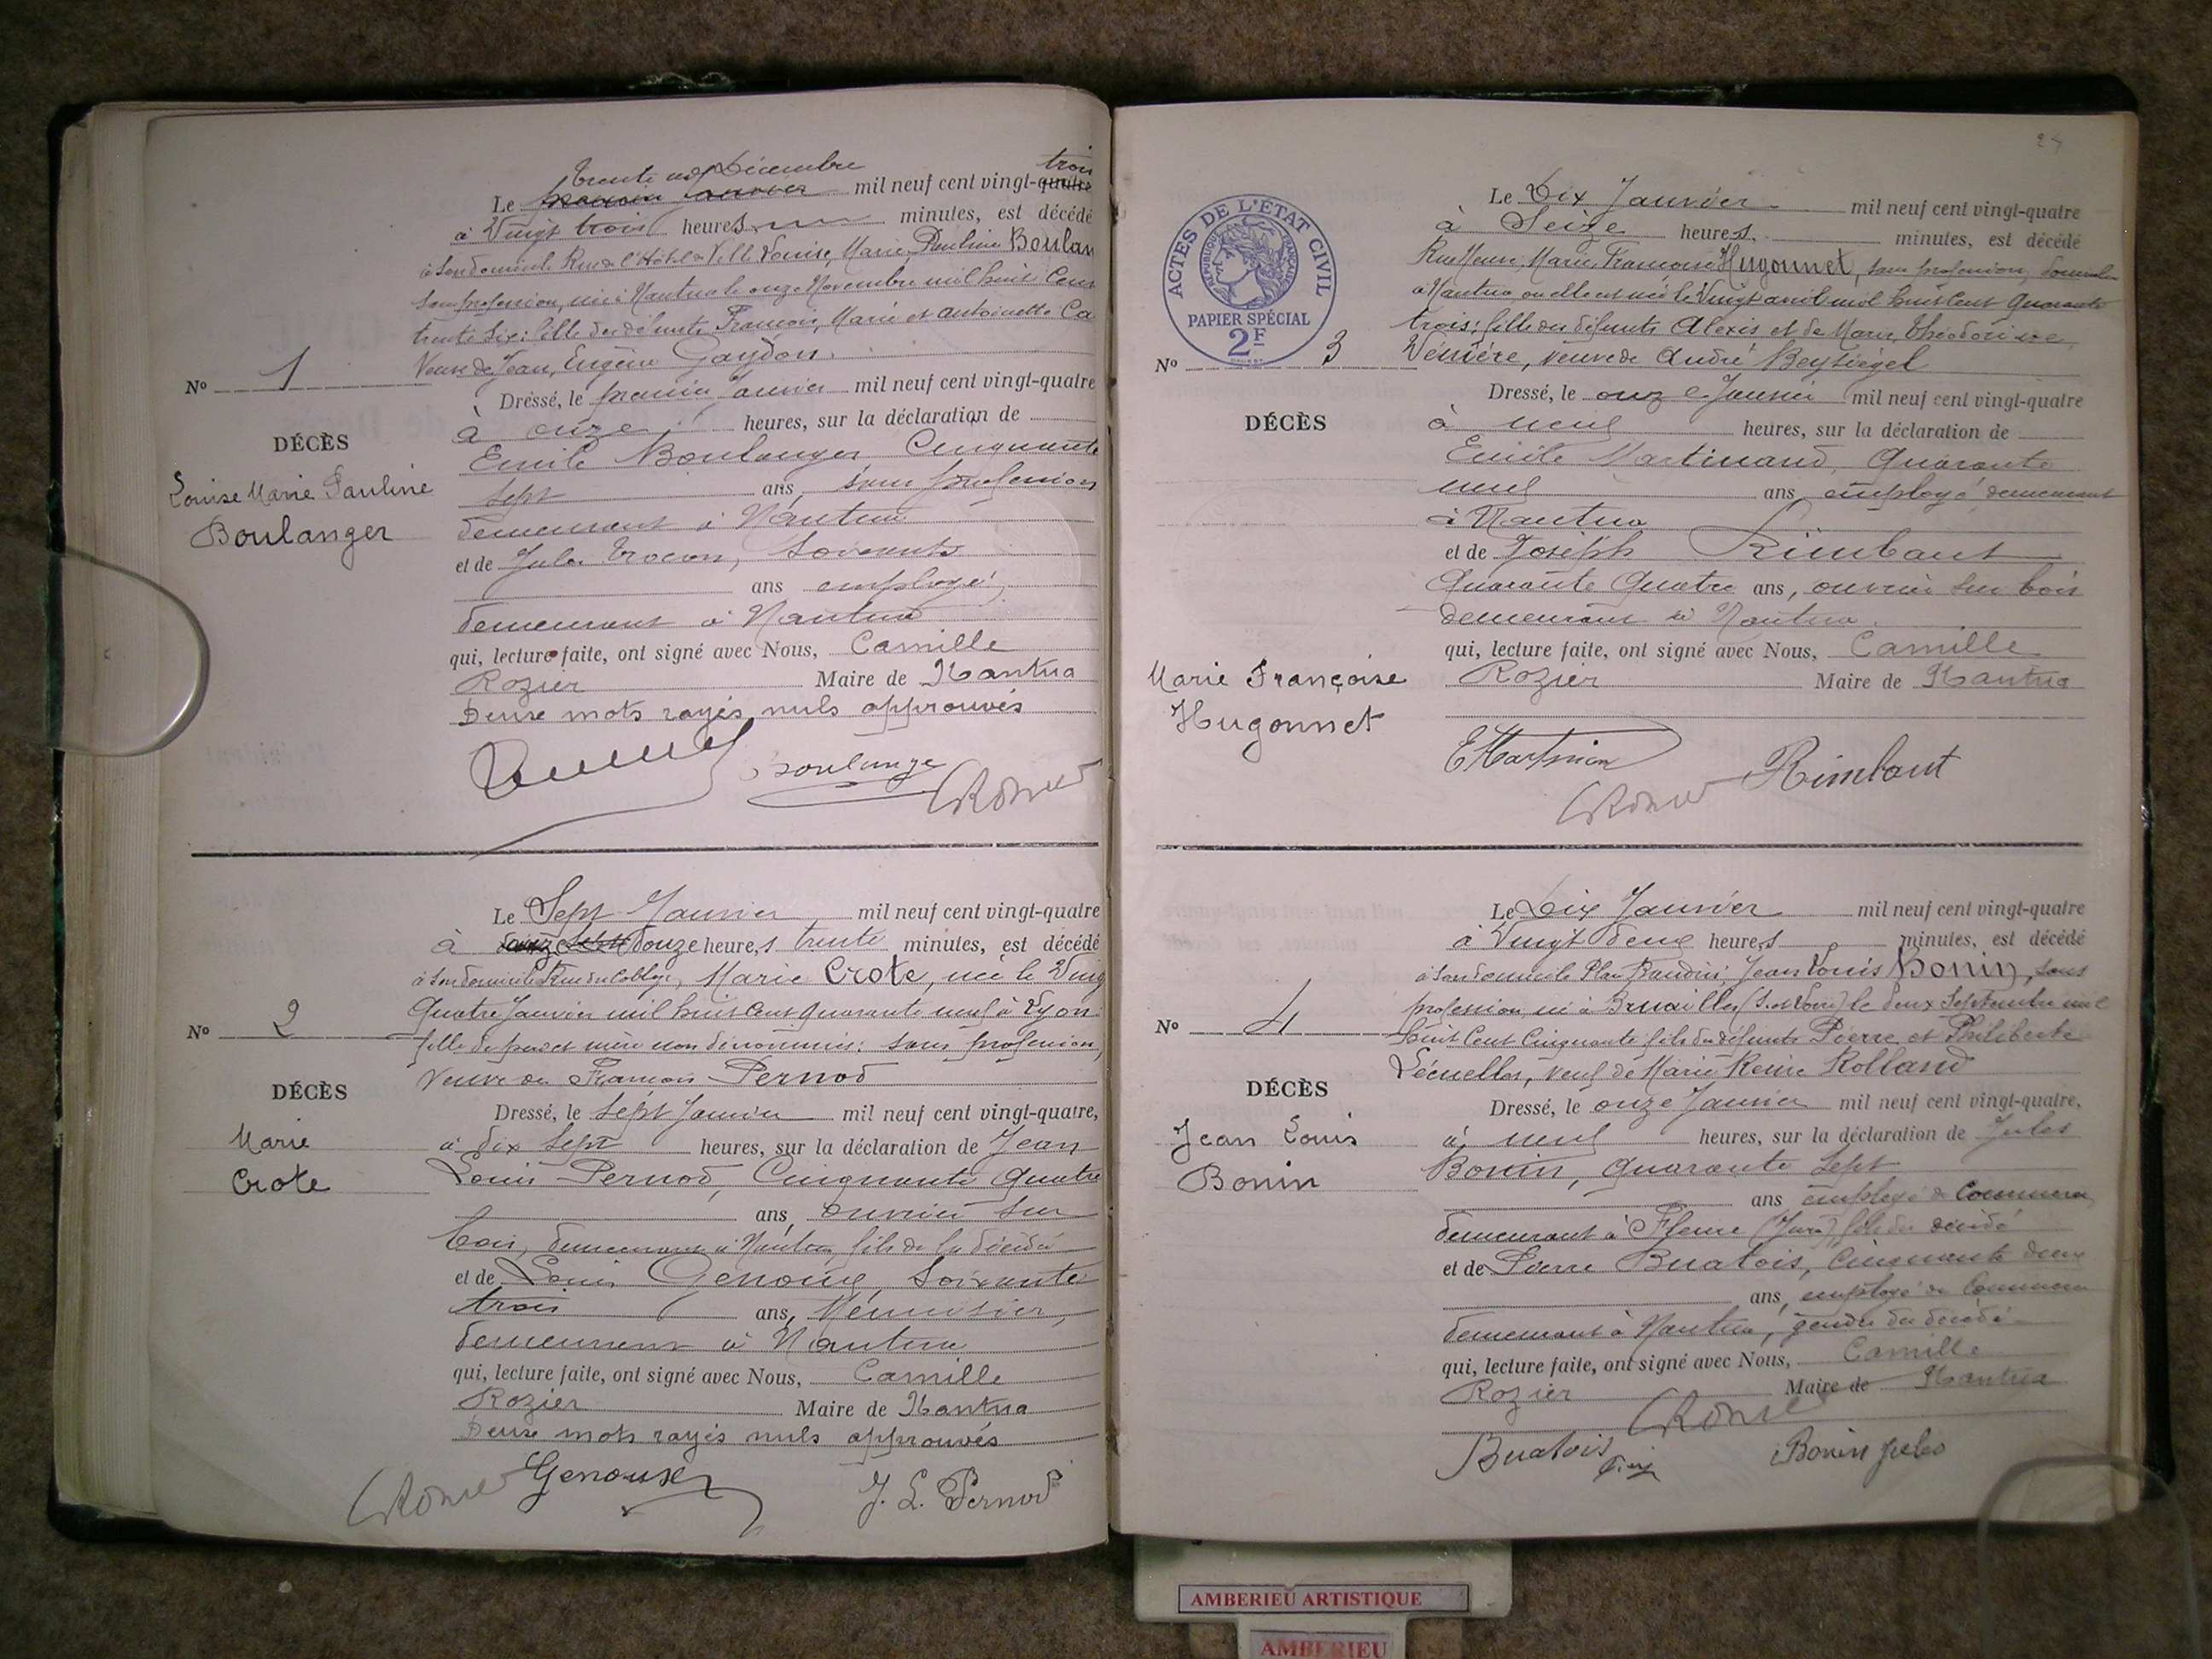 trente un Décembre trois
Le premier Janvier mil neuf cent vingt-quatre
à Vingt trois heures minutes, est décédé
à son domicile Rue de l'Hôtel de Ville Louise, Marie, Pauline Boulan
sans profession, née à Nantua le onze Novembre mil huit Cent
trente six: fille des défunts François, Marie et Antoinette Ca
Veuve de Jean, Eugène Gaydon.
No 1
Dressé, le premier Janvier mil neuf cent vingt-quatre
à onze heures, sur la déclaration de
DÉCÈS
Emile Boulanger Cinquante
Louise Marie Pauline
sept ans, sans profession
Boulanger
demeurant à Nantua
et de Jules Trocon, soixante
ans employé
demeurant à Nantua
qui, lecture faite, ont signé avec Nous, Camille
Rozier Maire de Nantua
Deux mots rayés nuls approuvés
Boulanger
CRozier
Le Sept Janvier mil neuf cent vingt-quatre
à douze heures trente minutes, est décédé
à son domicile Rue du Collège, Marie Crote, née le Ving
Quatre Janvier mil huit Cent quarante neuf à Lyon
No 2
fille de père et mère non dénommés: sans profession,
Veuve de François Pernod
DÉCÈS
Dressé, le sept Janvier mil neuf cent vingt-quatre,
Marie
à dix sept heures, sur la déclaration de Jean
Crote
Louis Pernod, Cinquante quatre
ans, ouvrier sur
bois, demeurant à Nantua fils de la décédée
et de Louis Genoux, soixante
trois ans, Menuisier,
demeurant à Nantua
qui, lecture faite, ont signé avec Nous, Camille
Rozier Maire de Nantua
Deux mots rayés nuls approuvés
CRozier Genoux J. L. Pernod
24
ACTES DE L'ETAT CIVIL
REPUBLIQUE FRANÇAISE
PAPIER SPÉCIAL
2F
Le Dix Janvier mil neuf cent vingt-quatre
à Seize heures. minutes, est décédé
Rue Neuve, Marie, Françoise Hugonnet, sans profession, domiciliée
à Nantua où elle est née le Vingt avril mil huit Cent quarante
trois: fille des défunts Alexis et de Marie, Théodorine
No 3
Veuve de André Beytiégel
Dressé, le onze Janvier mil neuf cent vingt-quatre
DÉCÈS
à neuf heures, sur la déclaration de
Emile Martinand, Quarante
neuf ans, employé demeurant
à Nantua
et de Joseph Rimbaut
Quarante Quatre ans, ouvrier sur bois
demeurant à Nantua.
qui, lecture faite, ont signé avec Nous, Camille
Marie Françoise
Rozier Maire de Nantua
Hugonnet
EMartinan
CRozier Rimbaut
Le Dix Janvier mil neuf cent vingt-quatre
à Vingt deux heures minutes, est décédé
à son domicile Place Baudin: Jean Louis Bonin, sans
profession né à Bruailles (S. et Loire) le deux Septembre mil
No 4
huit Cent Cinquante fils des défunts Pierre et Philiberte
Lécuelles, veuf de Marie Reine Rolland
DÉCÈS
Dressé, le onze Janvier mil neuf cent vingt-quatre,
Jean Louis
à neuf heures, sur la déclaration de Jules
Bonin
Bonin, quarante sept
ans employé de Commerce
demeurant à (Jura) fils du décédé
et de Pierre Buatois, Cinquante deux
ans, employé de Commerce
demeurant à Nantua, gendre du décédé
qui, lecture faite, ont signé avec Nous, Camille
Rozier Maire de Nantua
CRozier
Buatois Bonin Jules
AMBERIEU ARTISTIQUE
AMBERIEU